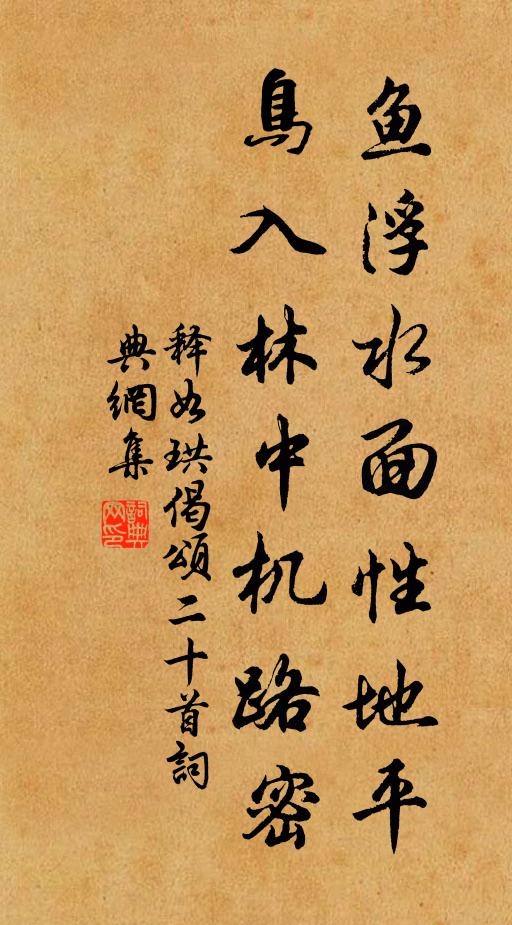 鱼浮水面性地平
鳥入林中机路密
释如珙偈頌二十首詞
典網集
詞典网印